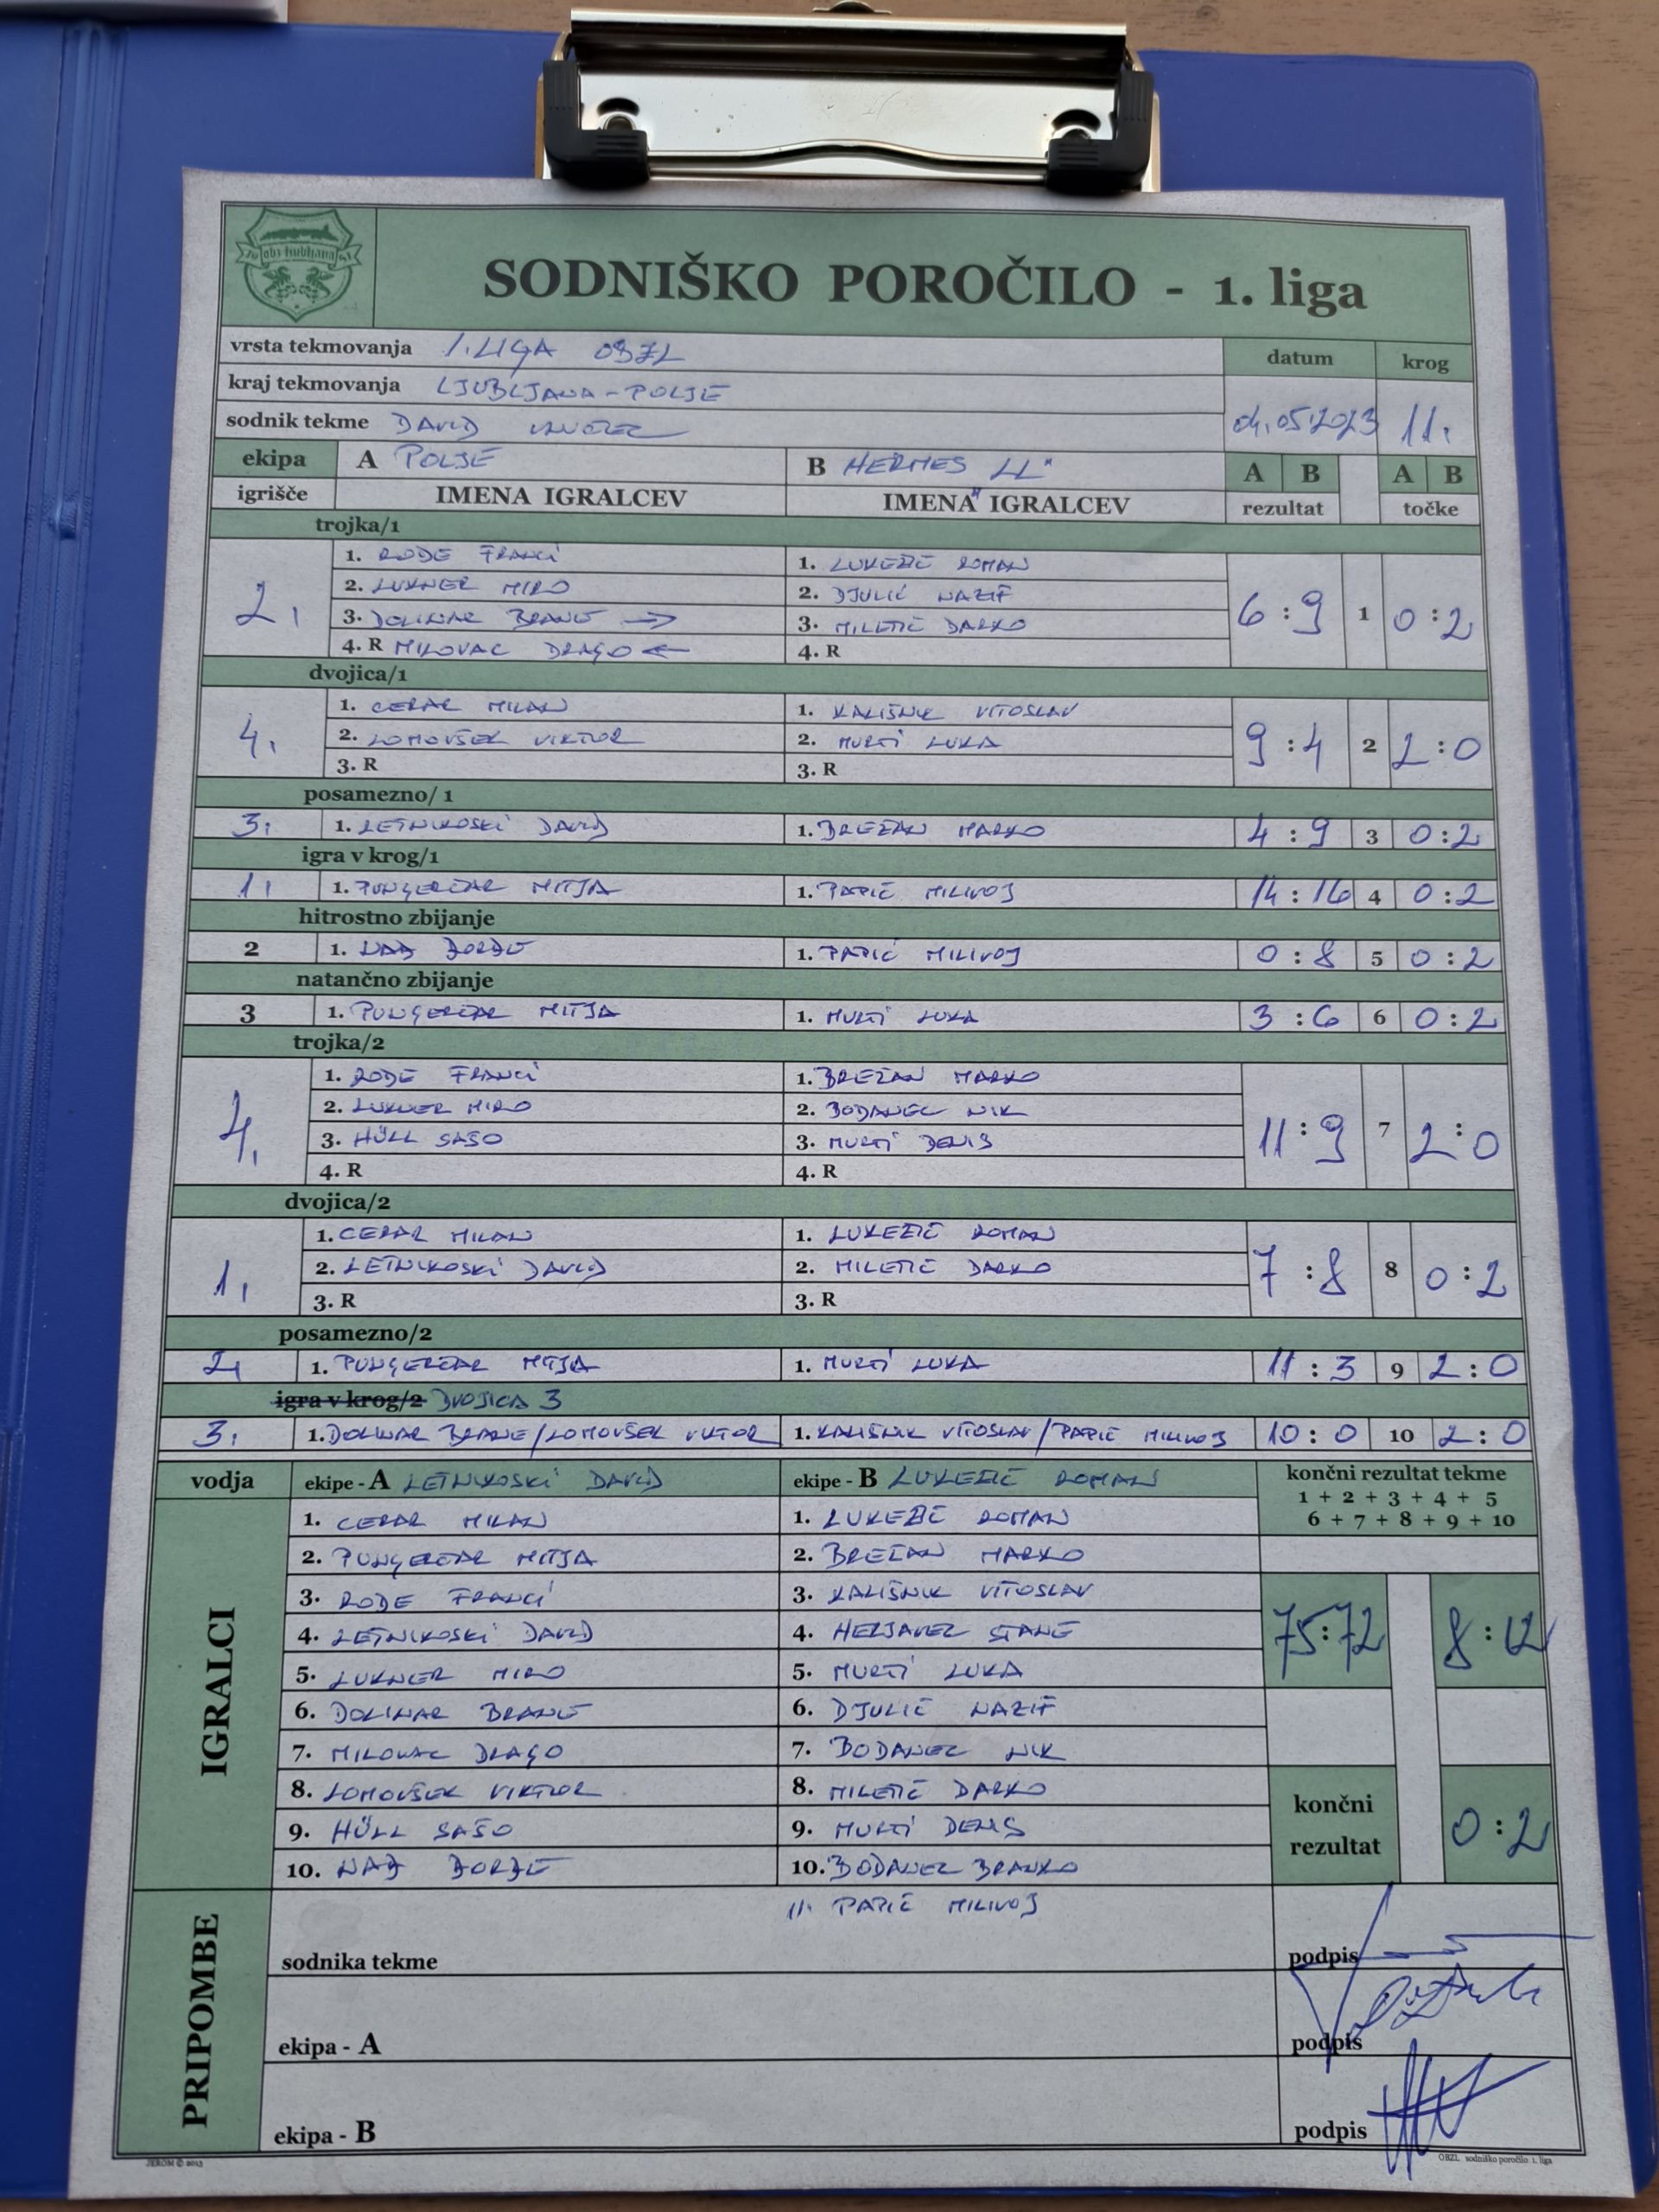 obz ljubljana
SODNIŠKO POROČILO - 1. liga
vrsta tekmovanja 1. LIGA OBZL datum krog
kraj tekmovanja LJUBLJANA-POLJE
sodnik tekme DAVID 04.05.2023 11.
ekipa A POLJE B HERMES LL" A B A B
igrišče IMENA IGRALCEV IMENA IGRALCEV rezultat točke
trojka/1
1. RODE FRANCI 1. LUKEŽIČ ROMAN
2. LUKNER MIRO 2. DJULIĆ NAZIF
2. 3. DOLINAR BRANE → 3. MILETIČ DARKO 6 : 9 1 0 : 2
4. R MILOVAC DRAGO ← 4. R
dvojica/1
1. CERAR MILAN 1. KALIŠNIK VITOSLAV
4. 2. LOMOVŠEK VIKTOR 2. MURTI LUKA 9 : 4 2 2 : 0
3. R 3. R
posamezno/ 1
3. 1. LETNIKOSKI DAVID 1. BREZAN MARKO 4 : 9 3 0 : 2
igra v krog/1
1. 1. PUNGERČAR MITJA 1. PAPIČ MILIVOJ 14 : 16 4 0 : 2
hitrostno zbijanje
2 1. NAĐ ĐORĐE 1. PAPIĆ MILIVOJ 0 : 8 5 0 : 2
natančno zbijanje
3 1. PUNGERČAR MITJA 1. MURTI LUKA 3 : 6 6 0 : 2
trojka/2
1. RODE FRANCI 1. BREZAN MARKO
2. LUKNER MIRO 2. BODANEC NIK
4. 3. HÜLL SAŠO 3. MURTI DENIS 11 : 9 7 2 : 0
4. R 4. R
dvojica/2
1. CERAR MILAN 1. LUKEŽIČ ROMAN
1. 2. LETNIKOSKI DAVID 2. MILETIČ DARKO 7 : 8 8 0 : 2
3. R 3. R
posamezno/2
2. 1. PUNGERČAR MITJA 1. MURTI LUKA 11 : 3 9 2 : 0
igra v krog/2 DVOJICA 3
3. 1. DOLINAR BRANE/LOMOVŠEK VIKTOR 1. KALIŠNIK VITOSLAV/PAPIČ MILIVOJ 10 : 0 10 2 : 0
vodja ekipe - A LETNIKOSKI DAVID ekipe - B LUKEŽIČ ROMAN končni rezultat tekme
1 + 2 + 3 + 4 + 5
6 + 7 + 8 + 9 + 10
IGRALCI
1. CERAR MILAN 1. LUKEŽIČ ROMAN
2. PUNGERČAR MITJA 2. BREZAN MARKO
3. RODE FRANCI 3. KALIŠNIK VITOSLAV
4. LETNIKOSKI DAVID 4. HERJAVEC STANE 75:72 8 : 12
5. LUKNER MIRO 5. MURTI LUKA
6. DOLINAR BRANE 6. DJULIČ NAZIF
7. MILOVAC DRAGO 7. BODANEC NIK
8. LOMOVŠEK VIKTOR 8. MILETIČ DARKO končni
9. HÜLL SAŠO 9. MURTI DENIS rezultat 0 : 2
10. NAĐ ĐORĐE 10. BODANEC BRANKO
11. PAPIČ MILIVOJ
PRIPOMBE
sodnika tekme podpis
ekipa - A podpis
ekipa - B podpis
JEROM © 2013 OBZL sodniško poročilo 1. liga